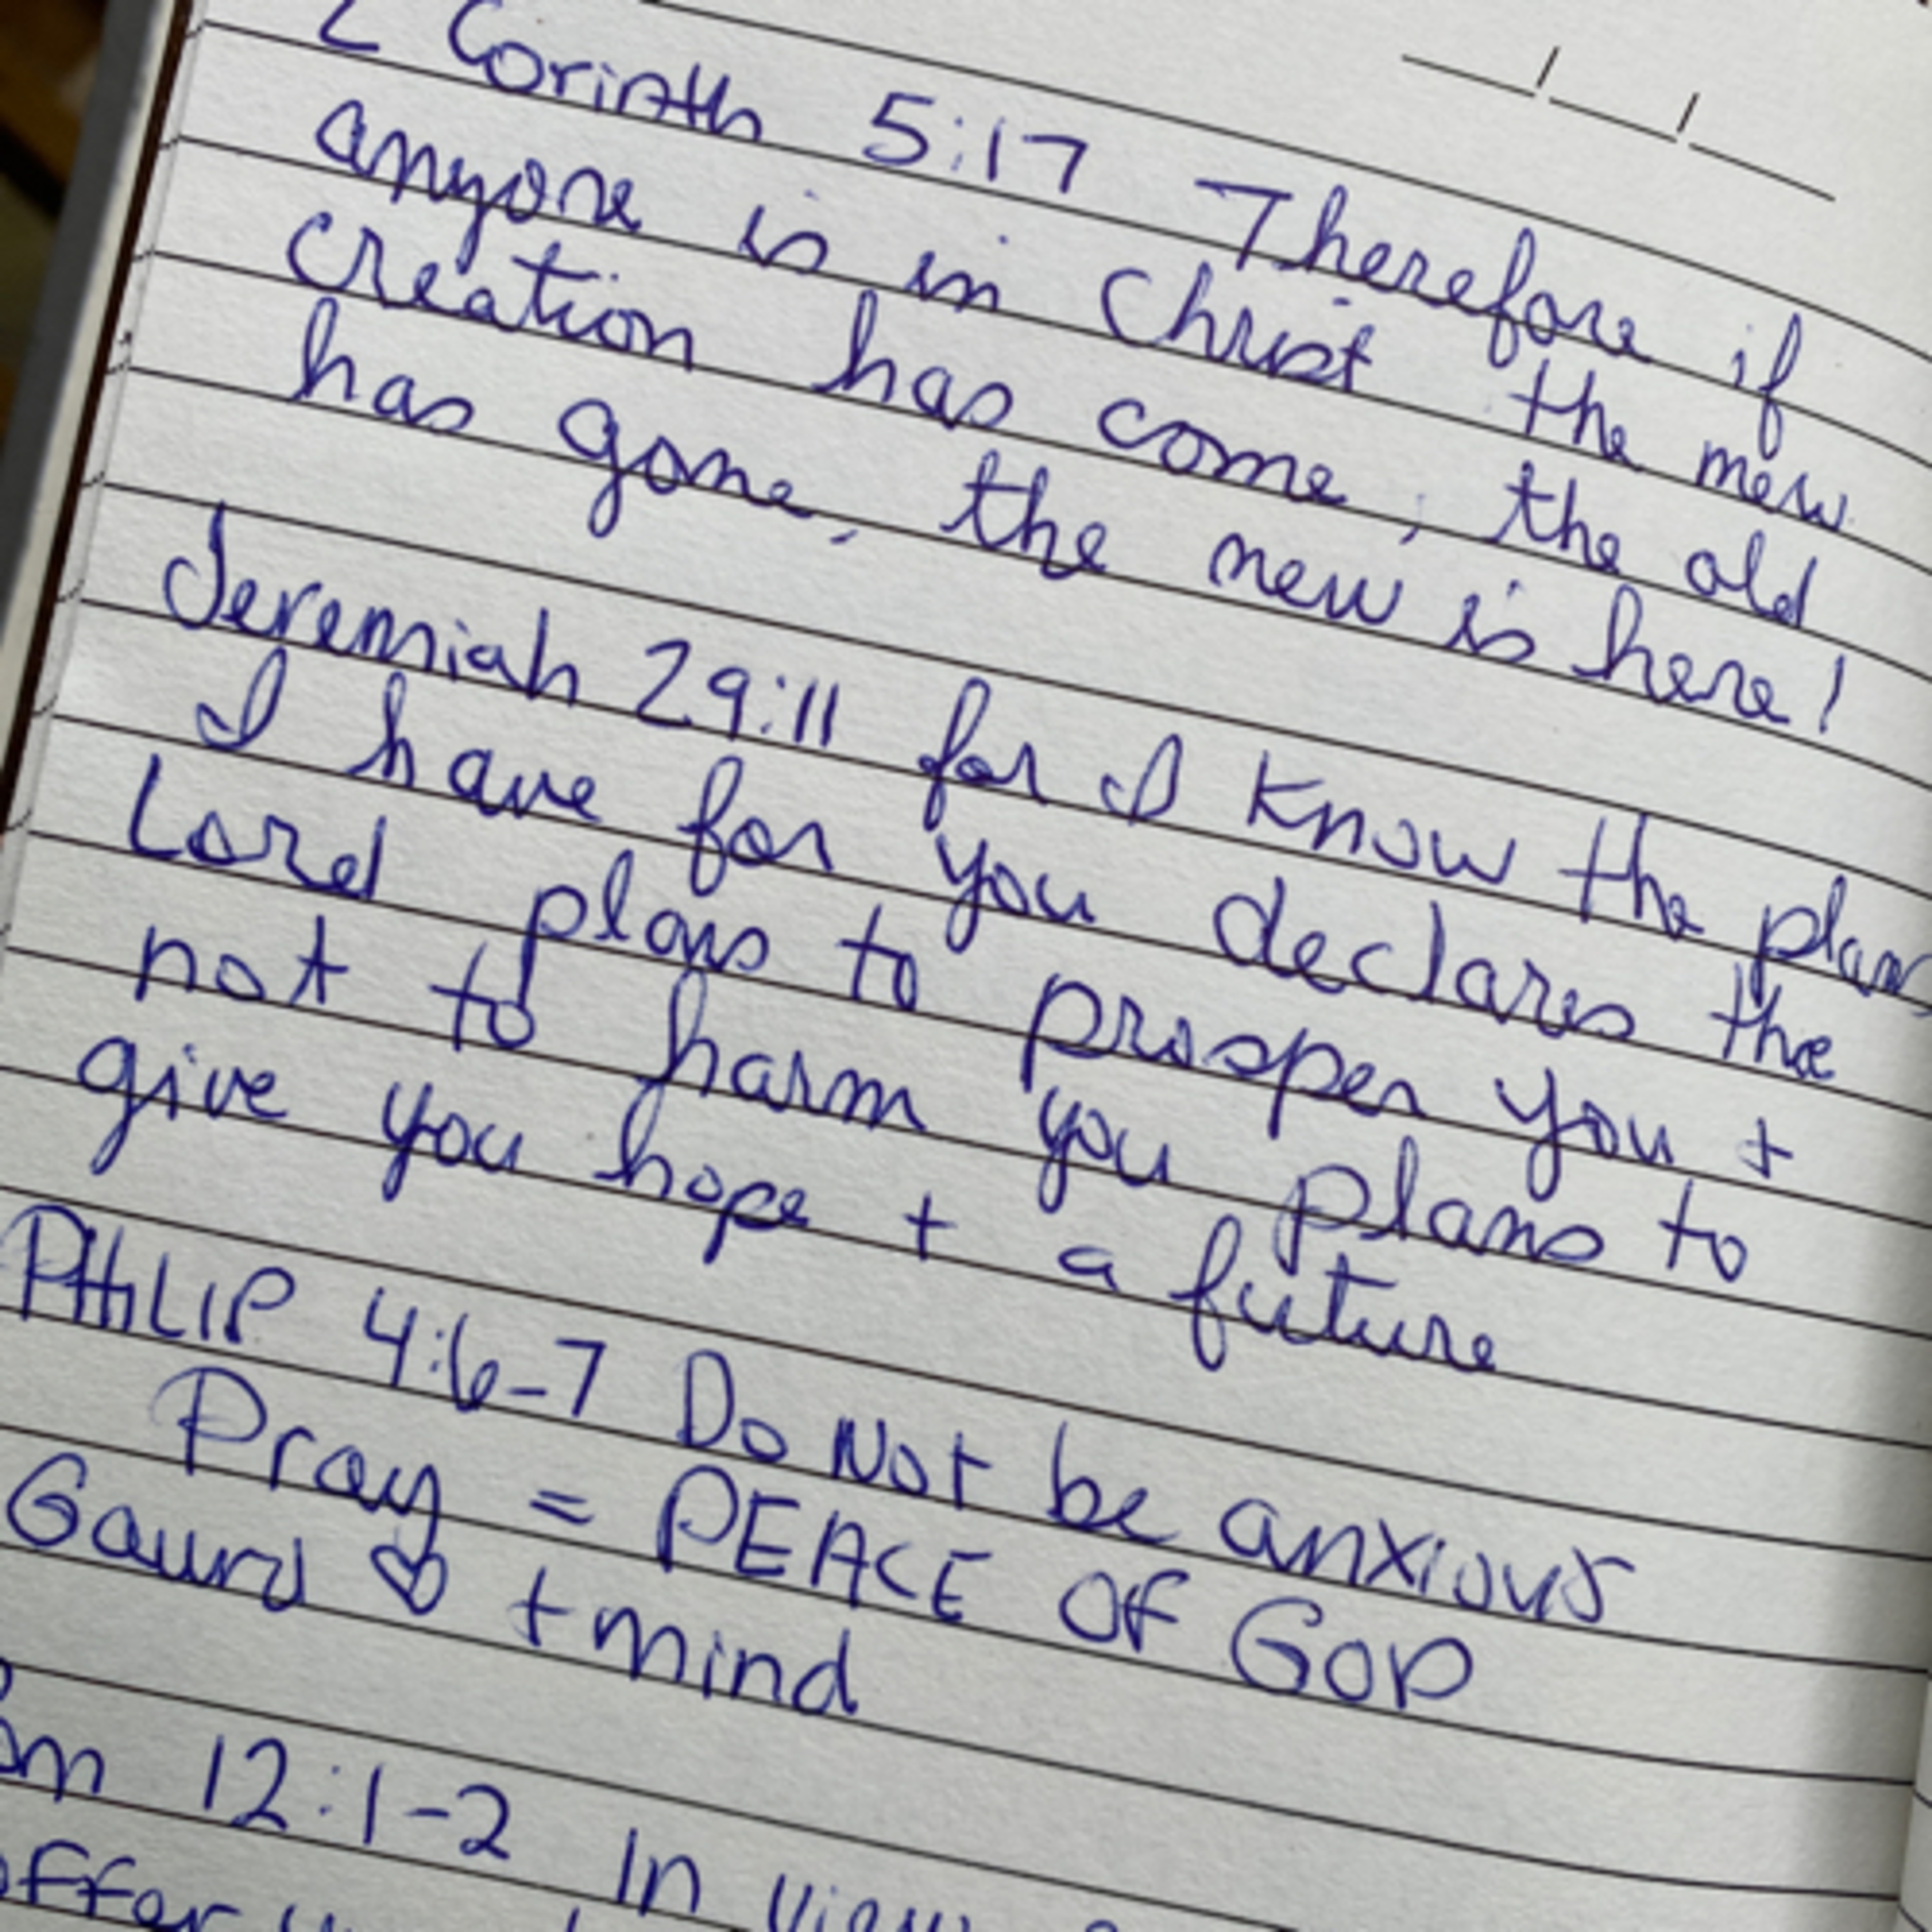 2 Corinth 5:17 Therefore if
anyone is in Christ the new
creation has come, the old
has gone, the new is here!
Jeremiah 29:11 for I know the plans
I have for you declares the
Lord plans to prosper you +
not to harm you plans to
give you hope + a future
PHILIP 4:6-7 Do Not be anxious
Pray = PEACE OF GOD
Gaurd ♡ + mind
om 12:1-2 In view
offer